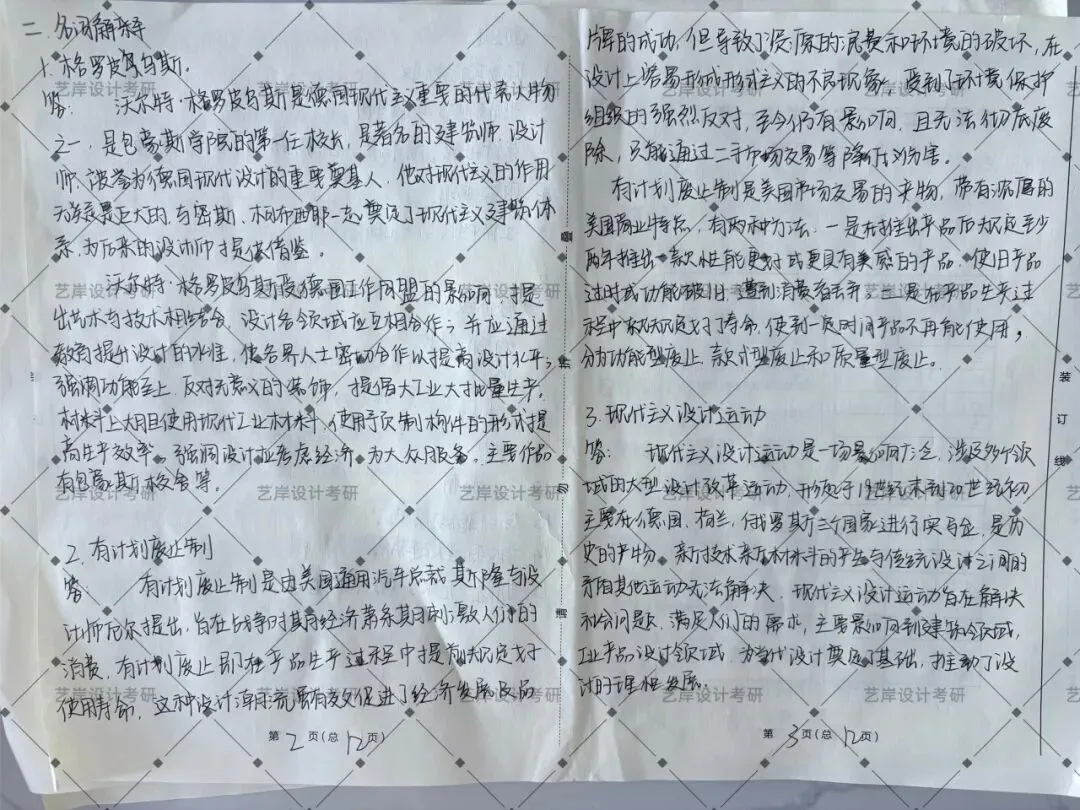 二. 名词解释
1. 格罗皮乌斯.
答: 沃尔特·格罗皮乌斯是德国现代主义重要的代表人物
之一,是包豪斯学院的第一任校长,是著名的建筑师、设计
师,被誉为德国现代设计的重要奠基人.他对现代主义的作用
无疑是巨大的,与密斯、柯布西耶一起奠定了现代主义建筑体
系,为后来的设计师提供借鉴。
沃尔特·格罗皮乌斯受德国工作同盟的影响,提
出艺术与技术相结合,设计各领域应互相合作,并应通过
教育提升设计的水准,使各界人士密切合作以提高设计水平,
强调功能至上,反对无意义的装饰,提倡大工业大批量生产,
材料上大胆使用现代工业材料,使用预制构件的形式提
高生产效率,强调设计应考虑经济,为大众服务。主要作品
有包豪斯校舍等。
2. 有计划废止制
答: 有计划废止制是由美国通用汽车总裁斯隆与设
计师厄尔提出,旨在战争时期经济萧条期刺激人们的
消费,有计划废止即在产品生产过程中提前规定好
使用寿命,这种设计潮流虽有效促进了经济发展及品
第2页(总12页)
牌的成功,但导致了资源的浪费和环境的破坏,在
设计上容易形成形式主义的不良现象,受到了环境保护
组织的强烈反对,至今仍有影响,且无法彻底废
除,只能通过二手市场交易等降低伤害。
有计划废止制是美国市场交易的产物,带有浓厚的
美国商业特点,有两种方法:一是在推出产品后规定至少
两年推出一款性能更好或更具有美感的产品,使旧产品
过时或功能破旧,遭到消费者丢弃。二是在产品生产过
程中就规定好寿命,使到一定时间产品不再能使用,
分为功能型废止、款式型废止和质量型废止。
3. 现代主义设计运动
答: 现代主义设计运动是一场影响广泛,涉及多个领
域的大型设计改革运动,形成于19世纪末到20世纪初
主要在德国、荷兰、俄罗斯三个国家进行实验,是历
史的产物。新技术新材料的产生与传统设计之间的
矛盾其他运动无法解决,现代主义设计运动旨在解决
部分问题,满足人们的需求,主要影响到建筑领域,
工业产品设计领域,为当代设计奠定了基础,推动了设
计的理性发展。
第3页(总12页)
装
订
线
艺岸设计考研